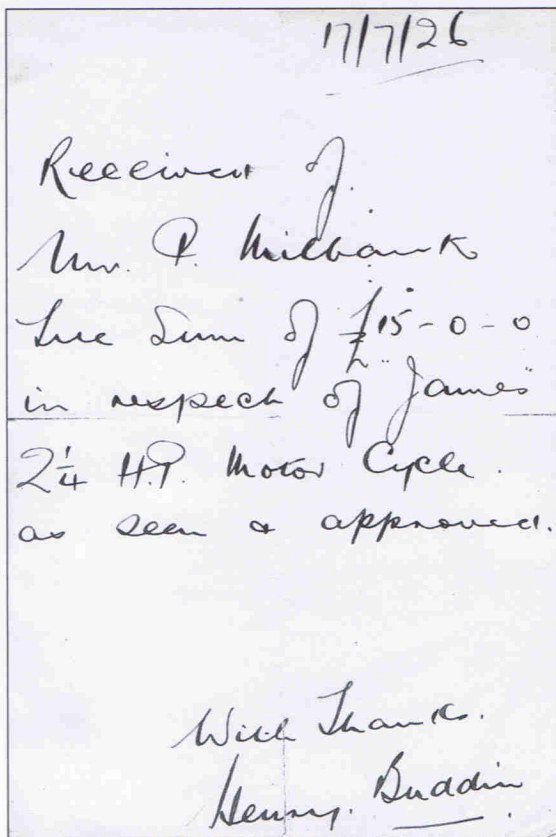 17/7/26
Received of
Mr. P. Milbank
The Sum of £15-0-0
in respect of "James"
2¼ H.P. Motor Cycle.
as seen & approved.
With Thanks.
Henry. Buddin